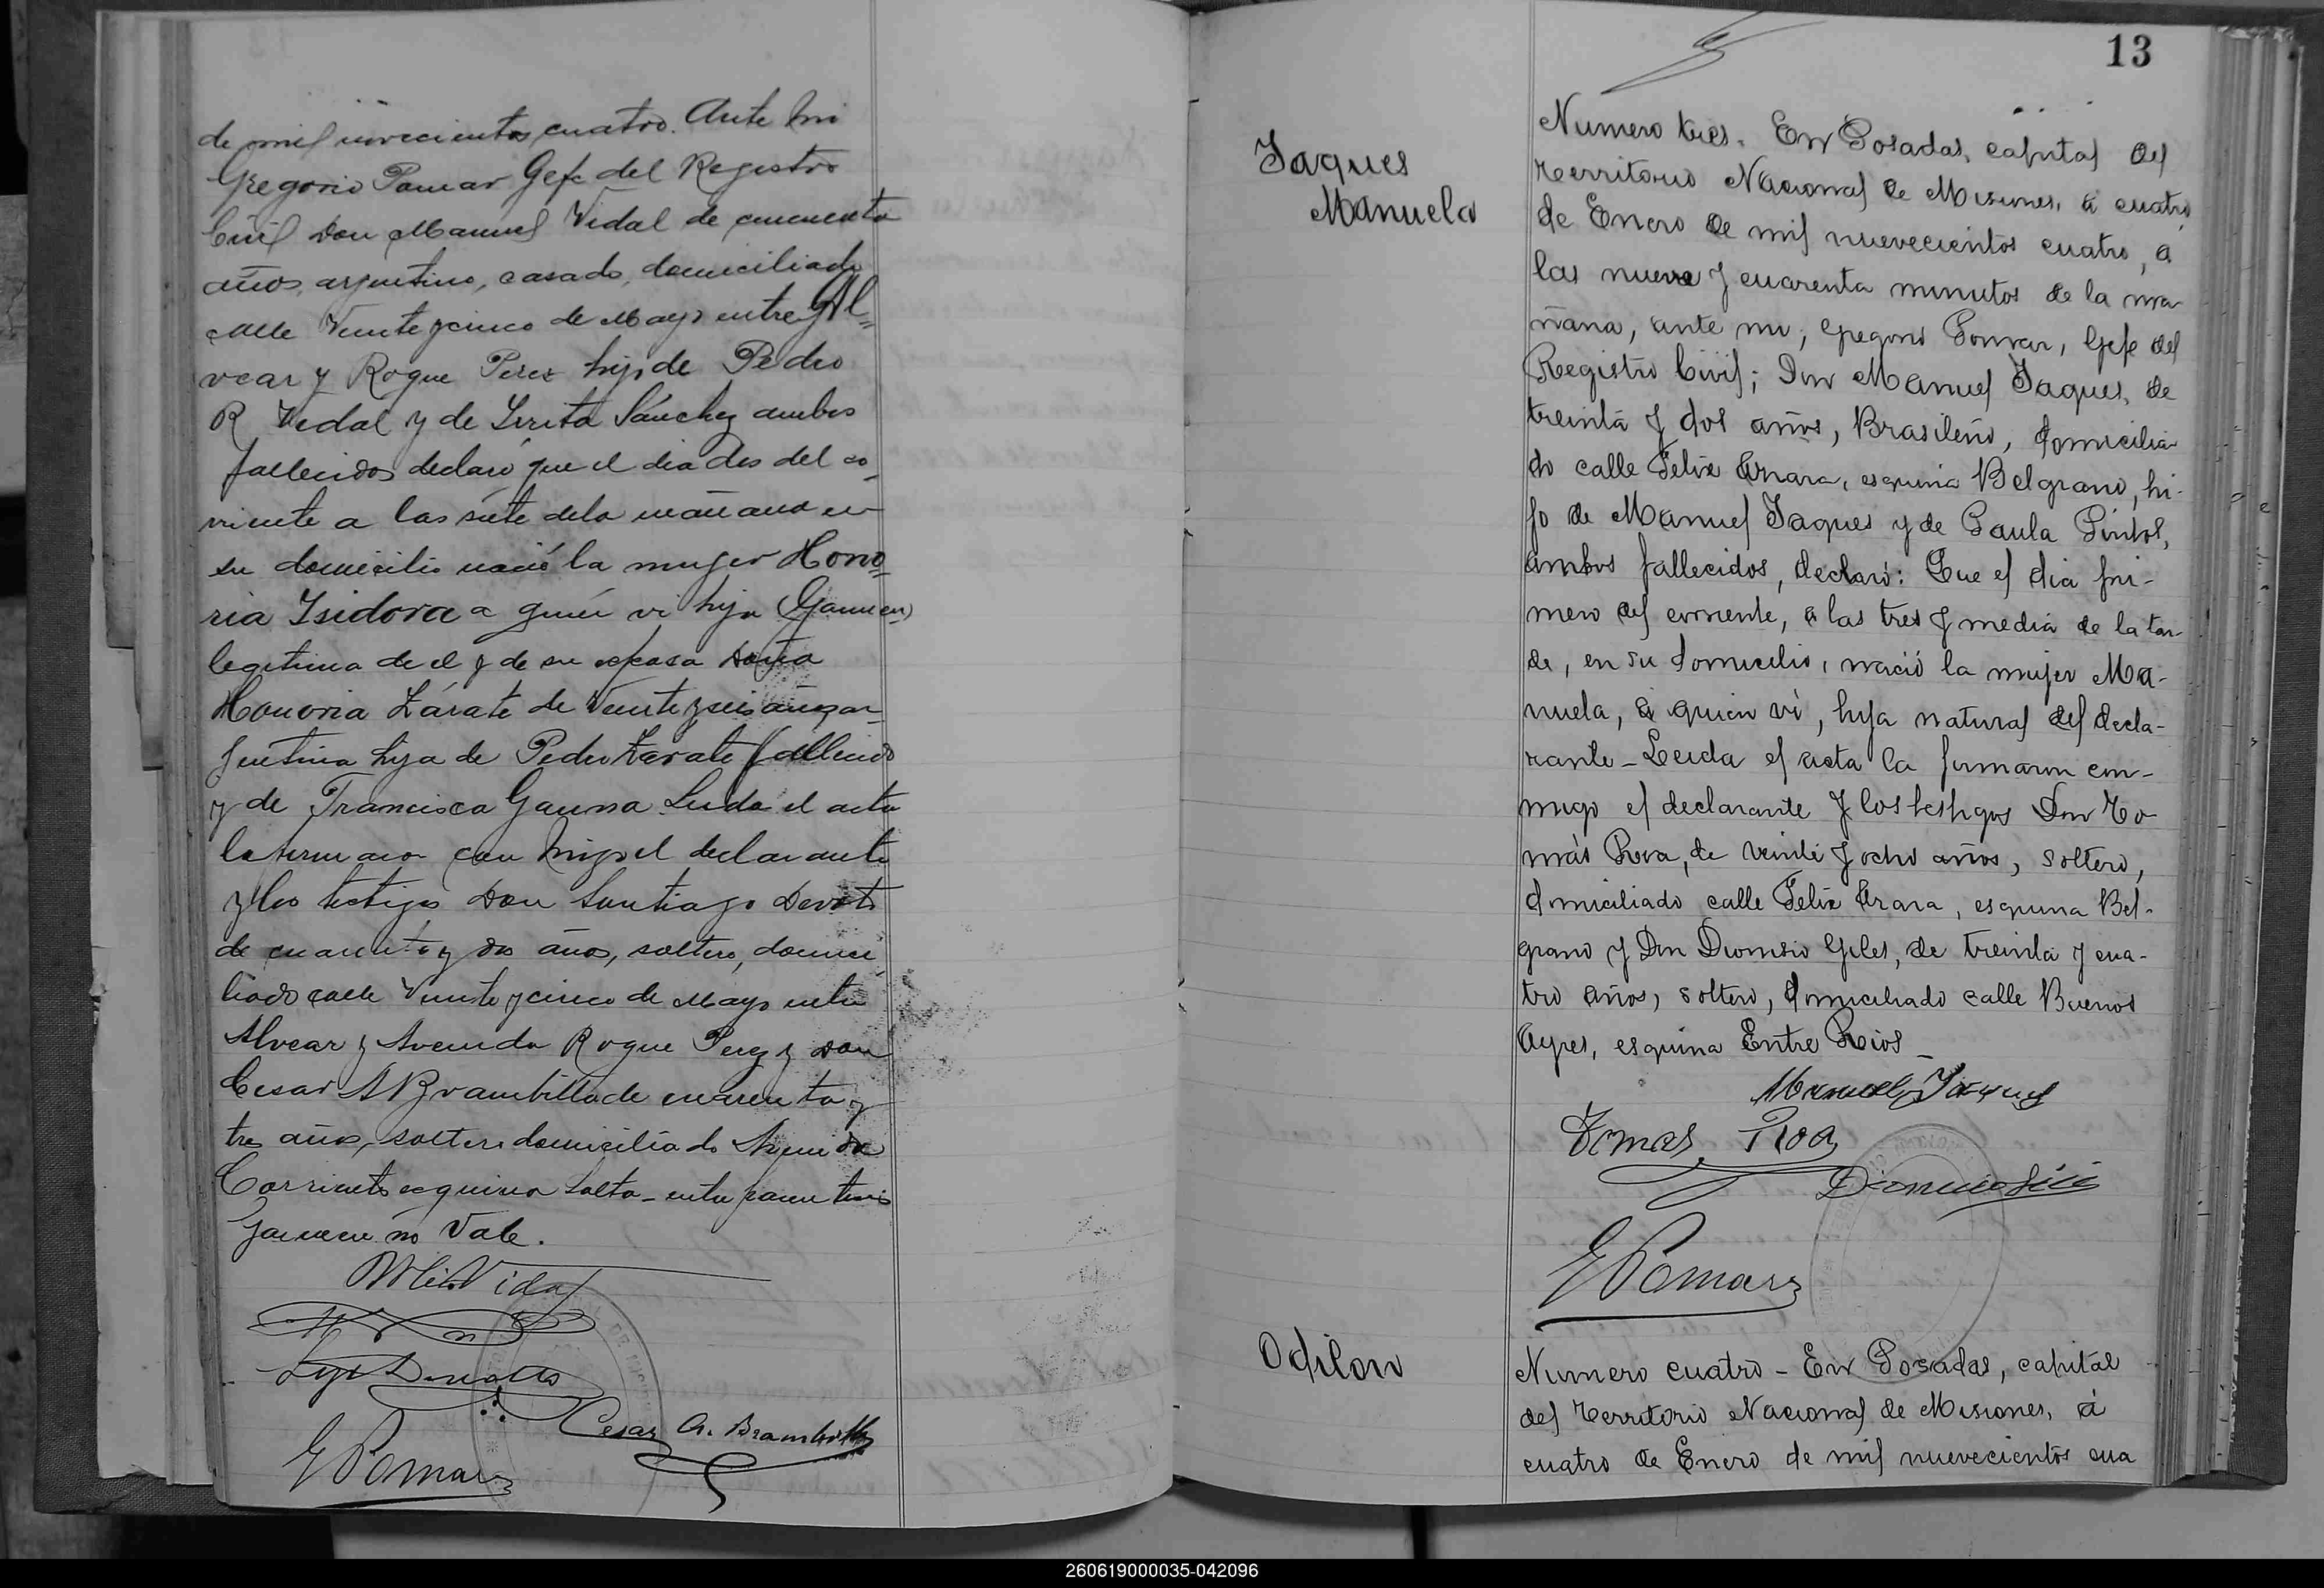 de mil novecientos cuatro. Ante mi
Gregorio Pomar Gefe del Registro
Civil Don Manuel Vidal de cincuenta
años, argentino, casado, domiciliado
calle Veinte y cinco de Mayo entre Al=
vear y Roque Perez hijo de Pedro
R Vidal y de Sánchez ambos
fallecidos declaró que el dia dos del co
rriente a las siete de la mañana en
su domicilio nació la mujer Hono=
ria Isidora a quien vi hija
legitima de el y de su esposa Doña
Honoria Zárate de Veinte y seis años ar
jentina hija de Pedro Zarate fallecido
y de Francisca Gauna. Leida el acta
la firmaron con migo el declarante
y los testigos Don Santiago Devoto
de cuarenta y dos años, soltero, domici
liado calle Veinte y cinco de Mayo entre
Alvear y Avenida Roque Perez y Don
Cesar A Brambilla de cuarenta y
tres años, soltero domiciliado Avenida
Corrientes esquina Salta _ entre parentesis
no Vale.
Vidal
Cesar A. Brambilla
G Pomar
13
Jaques
Manuela
Numero tres. En Posadas, capital del
Territorio Nacional de Misiones, á cuatro
de Enero de mil nuevecientos cuatro, á
las nueve y cuarenta minutos de la ma-
ñana, ante mi, Gregorio Pomar, Gefe del
Registro Civil; Don Manuel Jaques, de
treinta y dos años, Brasileño, domicilia-
do calle Felix Azara, esquina Belgrano, hi-
jo de Manuel Jaques y de Paula Pintos,
ambos fallecidos, declaró: Que el dia pri-
mero del corriente, á las tres y media de la tar-
de, en su domicilio, nació la mujer Ma-
nuela, á quien ví, hija natural del decla-
rante - Leida el acta la firmaron con-
migo el declarante y los testigos Don To-
más Roa, de veinte y ocho años, soltero,
domiciliado calle Felix Azara, esquina Bel-
grano y Don Dionisio Giles, de treinta y cua-
tro años, soltero, domiciliado calle Buenos
Ayres, esquina Entre Rios _
Manuel Jaques
Tomas Roa
Dionisio
G Pomar
Odilon
Numero cuatro - En Posadas, capital
del Territorio Nacional de Misiones, á
cuatro de Enero de mil nuevecientos cua
260619000035-042096